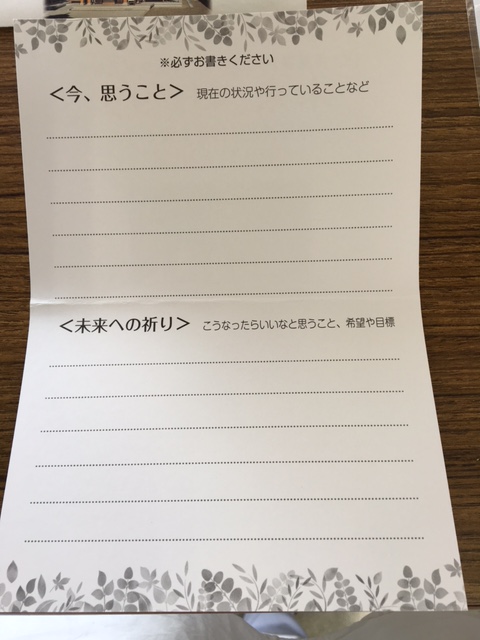 ※必ずお書きください
＜今、思うこと＞ 現在の状況や行っていることなど
＜未来への祈り＞ こうなったらいいなと思うこと、希望や目標